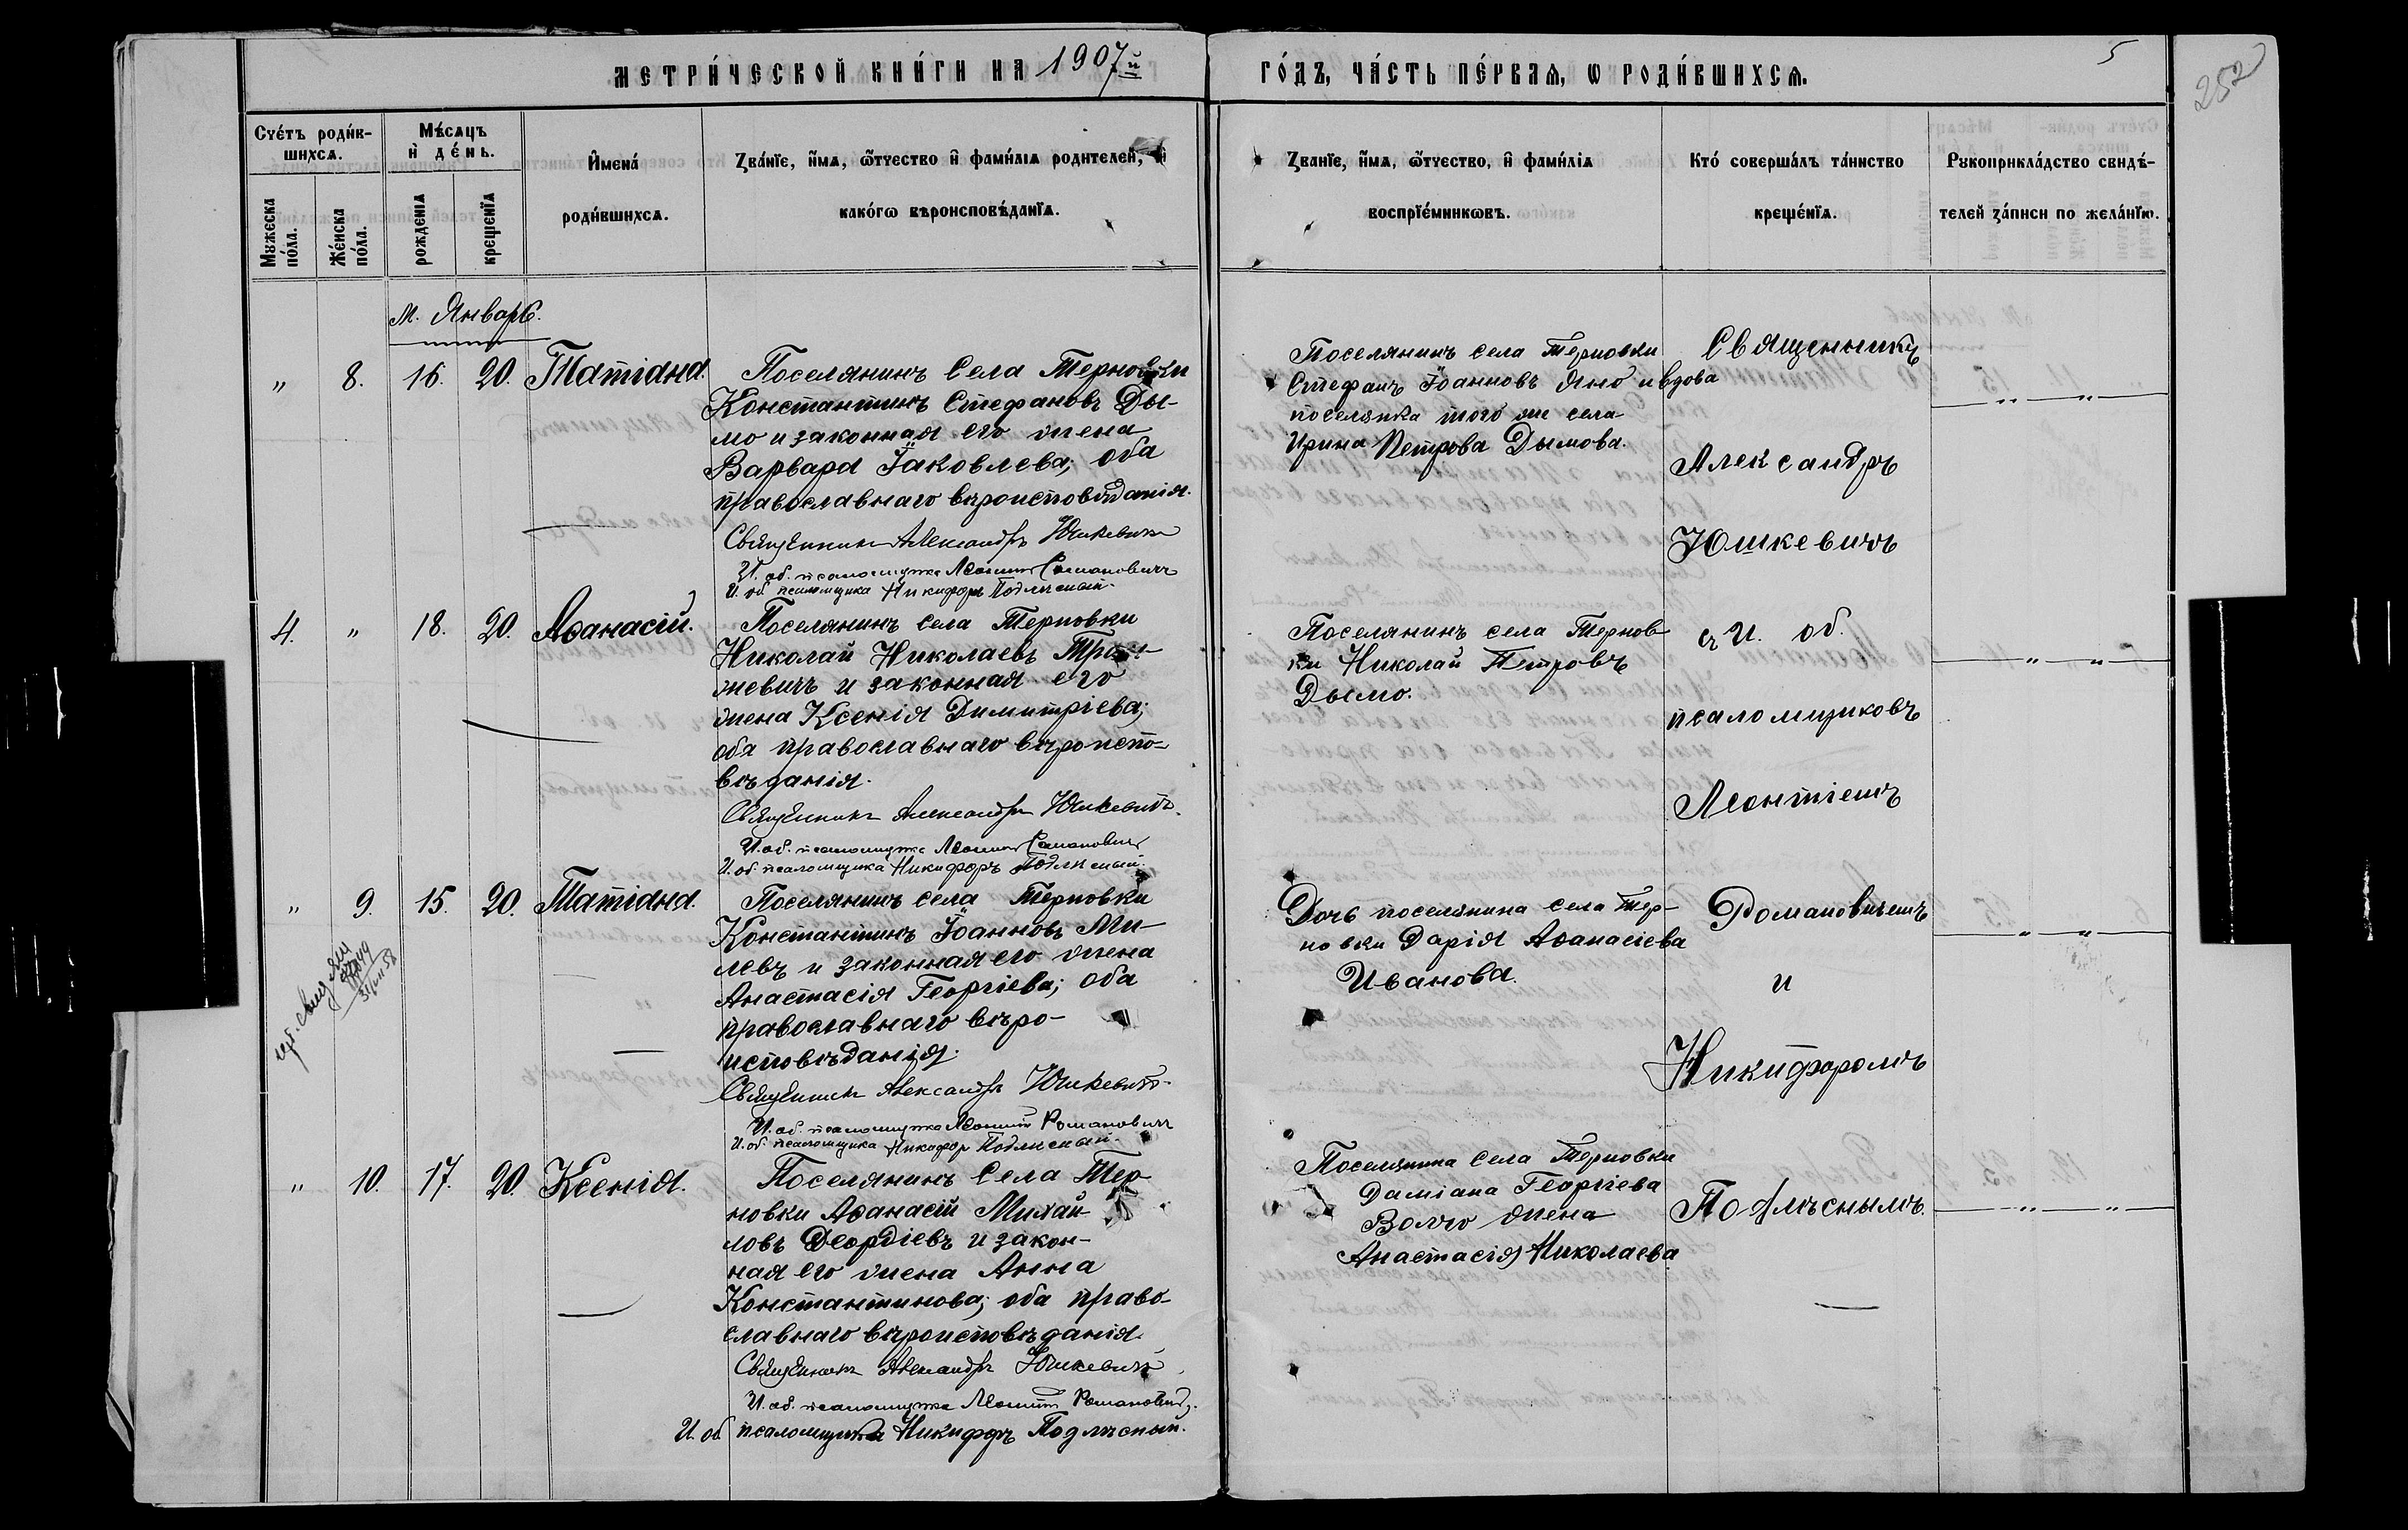 МЕТРИ́ЧЕСКОЙ КНИ́ГИ НА 1907й
ГО́ДЪ, ЧА́СТЬ ПЕ́РВАЯ, Ѡ РОДИ́ВШИХСЯ.
5
252
Сче́тъ роди́в-
шихся.
Мѣ́сяцъ
и҆ де́нь.
Мужеска
по́ла.
Же́нска
по́ла.
рожденія
крещенїя
И҆мена́
роди́вшихся.
Зва́нїе, и҆́мя, ѿтчество и҆ фами́лїя родителей, и҆
како́гѡ вѣроисповѣ́данїя.
Званїе, и҆́мя, ѿтчество, и҆ фами́лїя
воспрїе́мникѡвъ.
Кто́ соверша́лъ та́инство
креще́нїя.
Рукоприкла́дство свидѣ́-
телей за́писи по жела́нїю.
М. Январь.
" 8. 16. 20. Татіана.
Поселянинъ села Терновки
Константинъ Стефановъ Ды-
мо и законная его жена
Варвара Іаковлева; оба
православнаго вѣроисповѣданія.
Священникъ Александръ Юшкевичъ
И. об. псаломщика Леонтій Романовичъ
И. об. псаломщика Никифоръ Подлѣсный.
Поселянинъ села Терновки
Стефанъ Іоанновъ Дымо и вдова
поселянка того же села
Ирина Петрова Дымова.
Священникъ
Александръ
Юшкевичъ
4. " 18. 20. Аѳанасій.
Поселянинъ села Терновки
Николай Николаевъ
жевичъ и законная его
жена Ксенія Димитріева;
оба православнаго вѣроиспо-
вѣданія.
Священникъ Александръ Юшкевичъ.
И. об. псаломщика Леонтій Романовичъ
И. об. псаломщика Никифоръ Подлѣсный.
Поселянинъ села Тернов-
ки Николай Петровъ
Дымо.
съ И. об.
псаломщиковъ
Леонтіемъ
" 9. 15. 20. Татіана.
Поселянинъ села Терновки
Константинъ Іоанновъ Ми-
левъ и законная его жена
Анастасія Георгіева; оба
православнаго вѣро-
исповѣданія.
Священникъ Александръ Юшкевичъ.
И. об. псаломщика Леонтій Романовичъ
И. об. псаломщика Никифоръ Подлѣсный.
Дочь поселянина села Тер-
новки Дарія Аѳанасіева
Иванова.
Романовичемъ
и
Никифоромъ
" 10. 17. 20. Ксенія.
Поселянинъ села Тер-
новки Аѳанасій Михай-
ловъ Деордіевъ и закон-
ная его жена Анна
Константинова; оба право-
славнаго вѣроисповѣданія.
Священникъ Александръ Юшкевичъ
И. об. псаломщика Леонтій Романовичъ.
И. об. псаломщика Никифоръ Подлѣсный.
Поселянина села Терновки
Даміана Георгіева
Волчо жена
Анастасія Николаева
Подлѣснымъ.